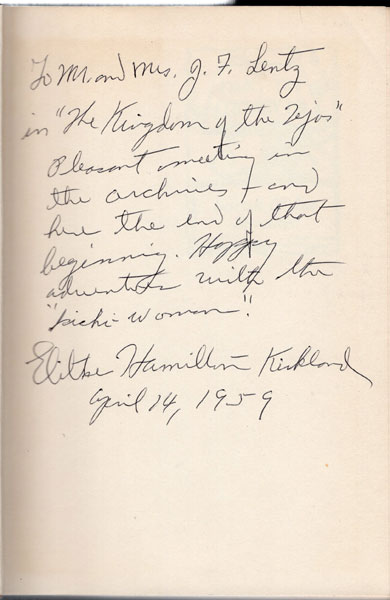 To Mr. and Mrs. J. F. Lentz
in "The Kingdom of the Tejas"
Pleasant meeting in
the archives – and
here the end of that
beginning. Happy
adventures with the
"bichi woman".
Elithe Hamilton Kirkland
April 14, 1959